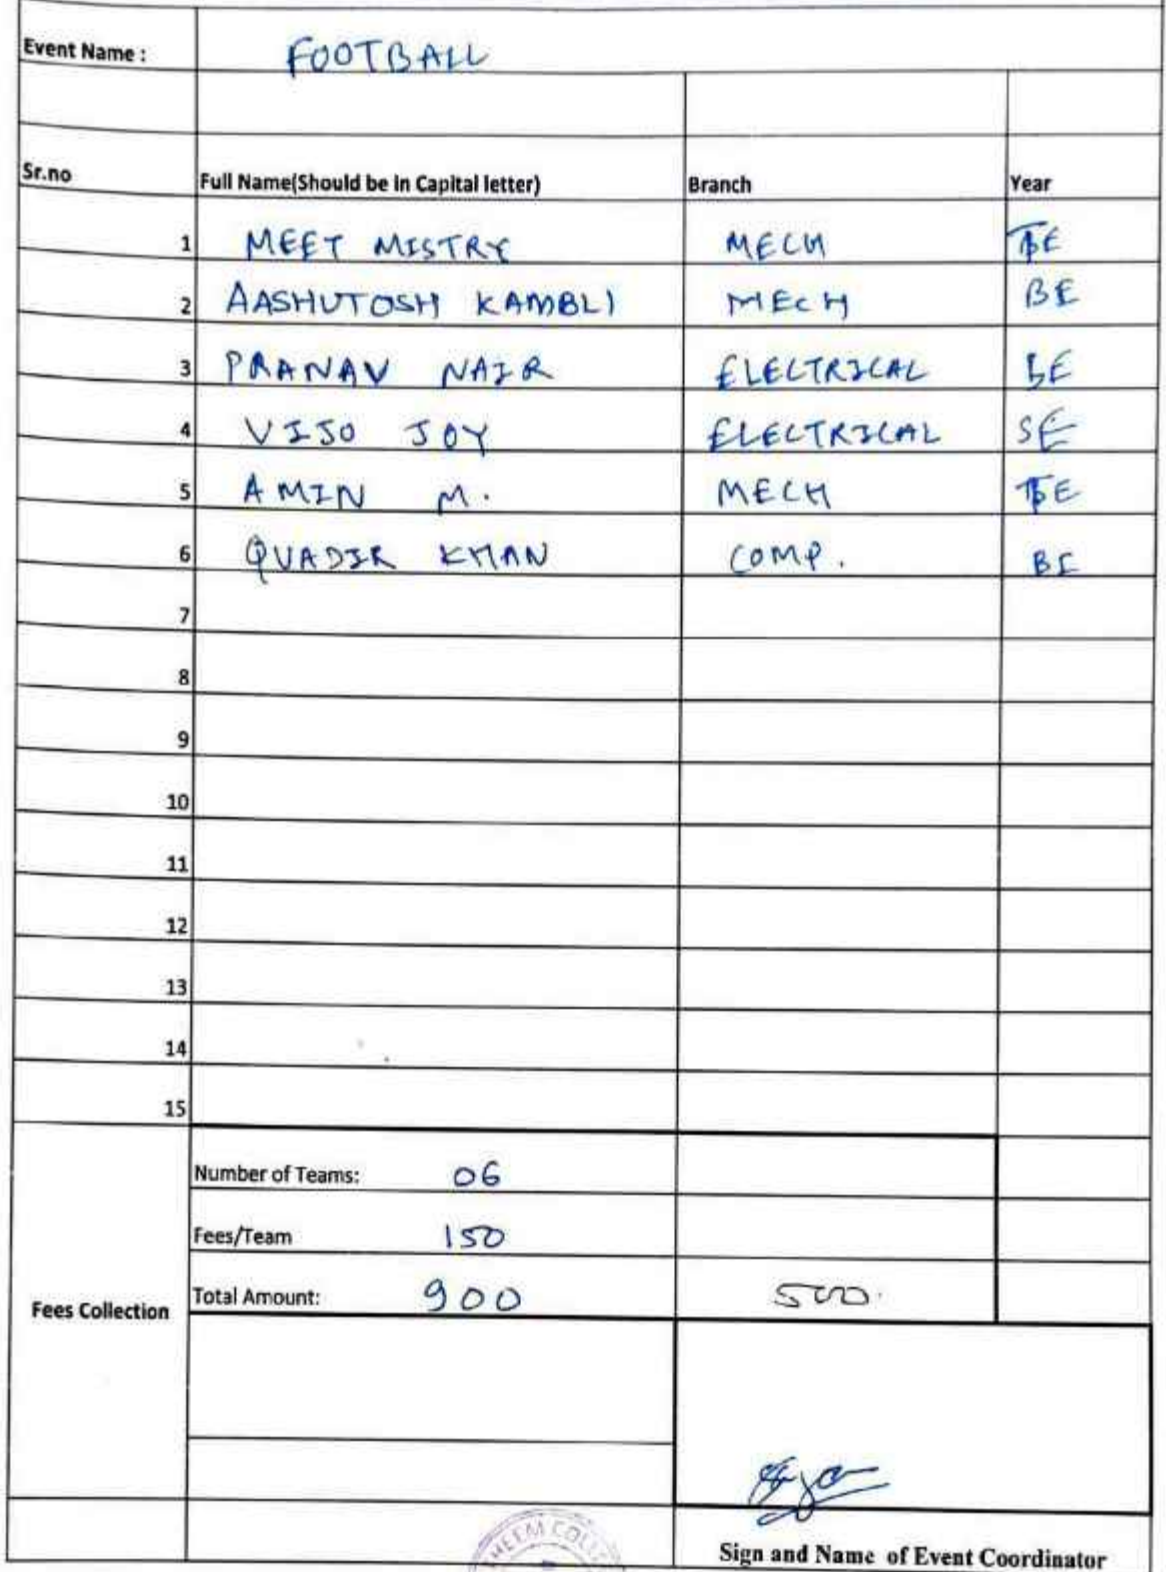 Event Name : FOOTBALL
Sr.no Full Name(Should be in Capital letter) Branch Year
1 MEET MISTRY MECH TE
2 AASHUTOSH KAMBLI MECH BE
3 PRANAV NAIR ELECTRICAL BE
4 VIJO JOY ELECTRICAL SE
5 AMIN M. MECH TE
6 QUADIR KHAN COMP. BE
7
8
9
10
11
12
13
14
15
Number of Teams: 06
Fees/Team 150
Fees Collection Total Amount: 900 500.
Sign and Name of Event Coordinator